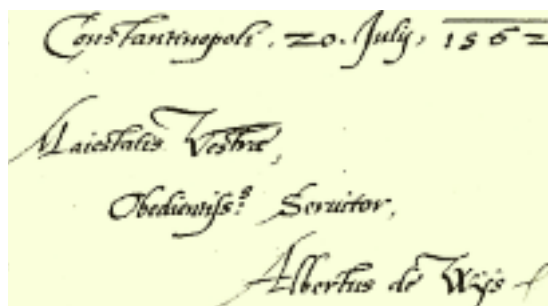 Constantinopoli, 20. Julij, 1562
Maiestatis Vestræ,
Obedientiss:s Seruitor,
Albertus de Wijs